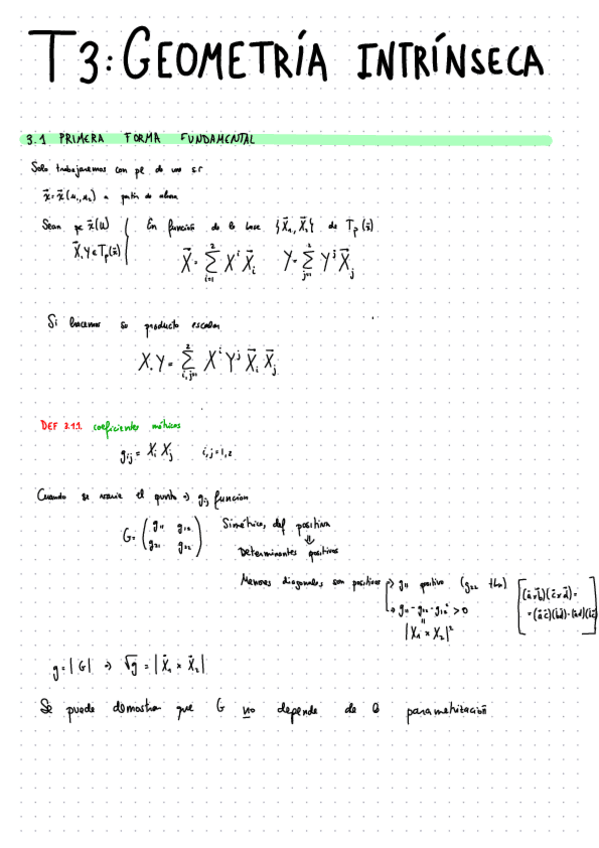 T3: GEOMETRÍA INTRÍNSECA
3.1 PRIMERA FORMA FUNDAMENTAL
Solo trabajaremos con pe de una sr
x⃗=x⃗(u₁,u₂) a partir de ahora
Sean p∈x⃗(U) En función de la base {X⃗₁,X⃗₂} de Tp(x⃗)
X⃗,Y∈Tp(x⃗) X⃗=∑_{i=1}^{2} Xⁱ X⃗ᵢ Y=∑_{j=1}^{2} Yʲ X⃗ⱼ
Si hacemos su producto escalar
X.Y=∑_{i,j=1}^{2} XⁱYʲ X⃗ᵢ X⃗ⱼ
DEF 3.1.1 coeficientes métricos
gᵢⱼ = Xᵢ Xⱼ i,j=1,2
Cuando se varíe el punto → gᵢⱼ función
G=(g₁₁ g₁₂ Simétrica, def positiva
g₂₁ g₂₂) ⇓
Determinantes positivos
Menores diagonales son positivos → g₁₁ positivo (g₂₂ tbn)
[(a⃗×b⃗)(c⃗×d⃗)=
=(a⃗c⃗)(b⃗d⃗)-(a⃗d⃗)(b⃗c⃗)]
→ g₁₁-g₂₂-g₁₂² >0
|X₁×X₂|²
g=|G| → √g = |X⃗₁ × X⃗₂|
Se puede demostrar que G no depende de la parametrización